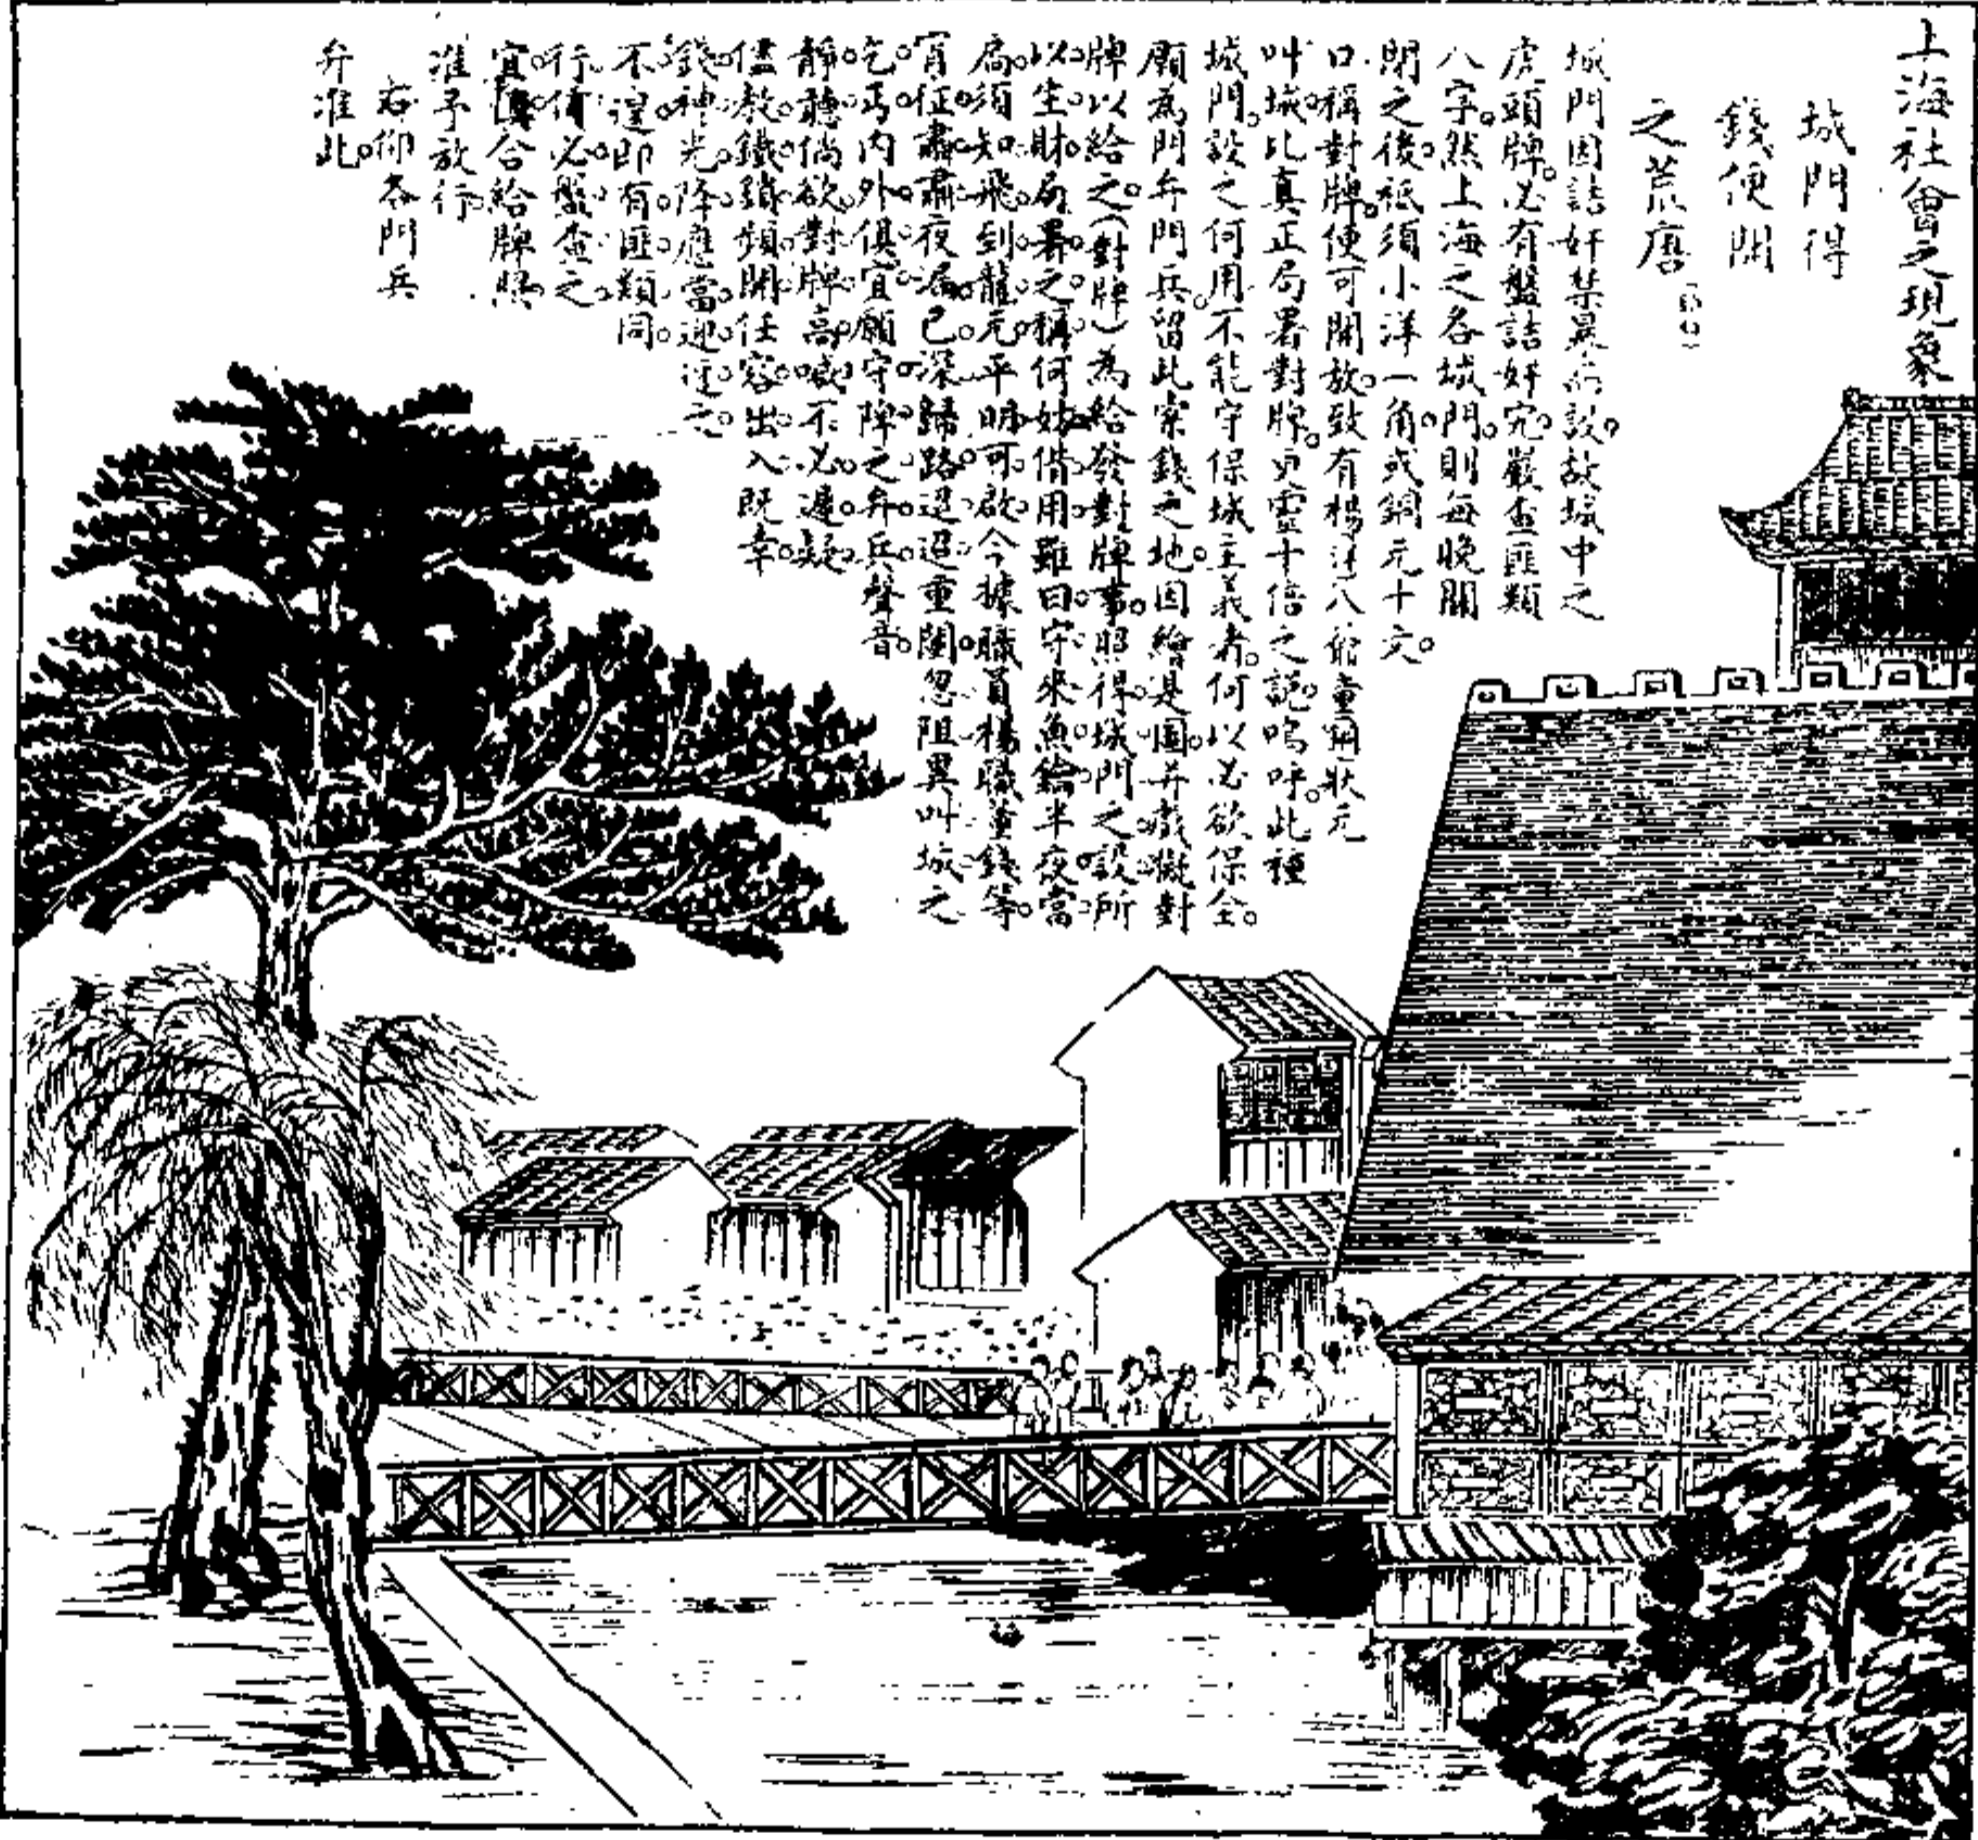 上海社會之現象
城門得
錢便開
之荒唐
城門因詰奸禁暴而設。故城中之
虎頭牌。必有盤詰奸宄。嚴查匪類
八字。然上海之各城門。則每晚關
閉之後。祇須小洋一角。或銅元十文。
口稱對牌。便可開放。致有楊洋八 童銅狀元
叫城。比真正局署對牌。更靈十倍之說。嗚呼。此種
城門。設之何用。不能守保城主義者。何以必欲保全。
願為門弁門兵。留此索錢之地。因繪是圖。并戲擬對
牌以給之。（對牌）為給發對牌事。照得城門之設。所
以生財。局署之稱。何妨借用。雖曰守來魚鑰。半夜當
局。須知飛到龍元。平明可啟。今據職員楊職董錢等。
宵征肅肅。夜漏已深。歸路迢迢。重闉忽阻。異叫城之
乞丐。內外俱宜。願守陴之弁兵。聲音
靜聽。倘欲對牌高喊。不必遲疑。
儘教鐵鎖頻開。任容出入。既幸
錢神光降。應當迎迓之
不遑。即有匪類同
行。何必盤查之
宜 合給牌照
准予放行。
右仰各門兵
弁准此。